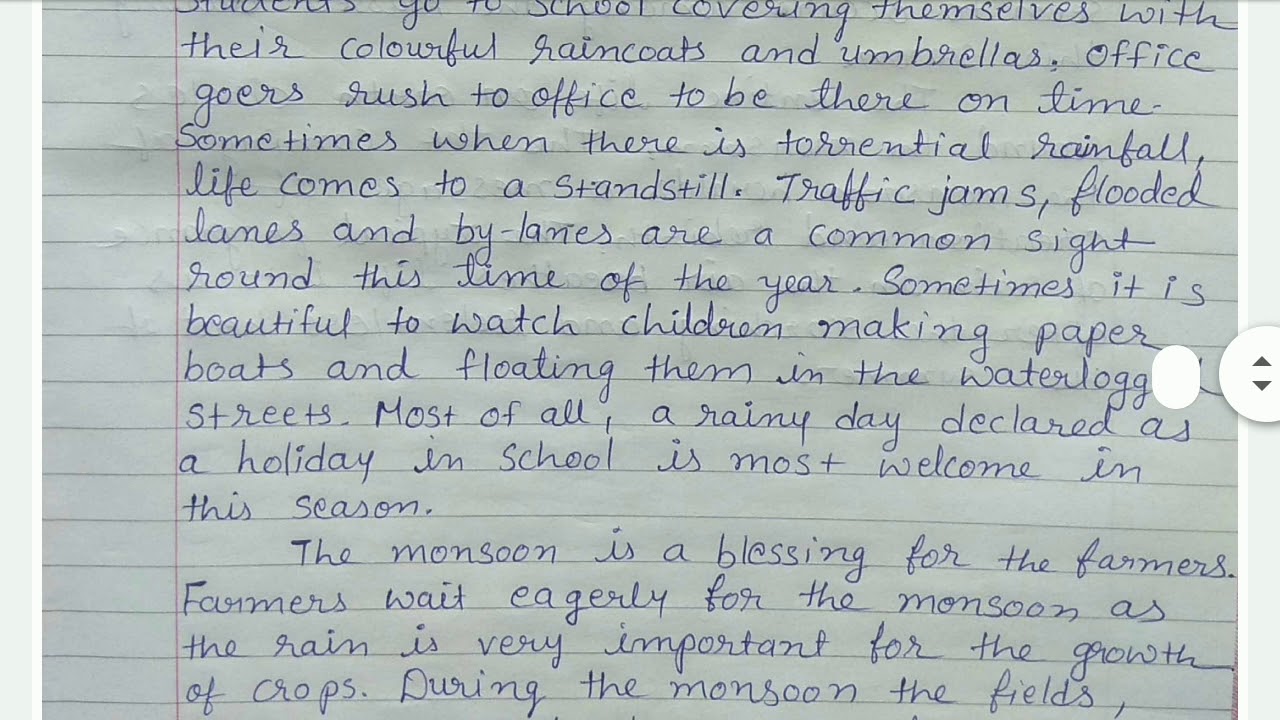 Students go to school covering themselves with
their colourful raincoats and umbrellas. Office
goers rush to office to be there on time.
Sometimes when there is torrential rainfall,
life comes to a standstill. Traffic jams, flooded
lanes and by-lanes are a common sight
round this time of the year. Sometimes it is
beautiful to watch children making paper
boats and floating them in the
streets. Most of all, a rainy day declared as
a holiday in school is most welcome in
this season.
The monsoon is a blessing for the farmers.
Farmers wait eagerly for the monsoon as
the rain is very important for the growth
of crops. During the monsoon the fields,